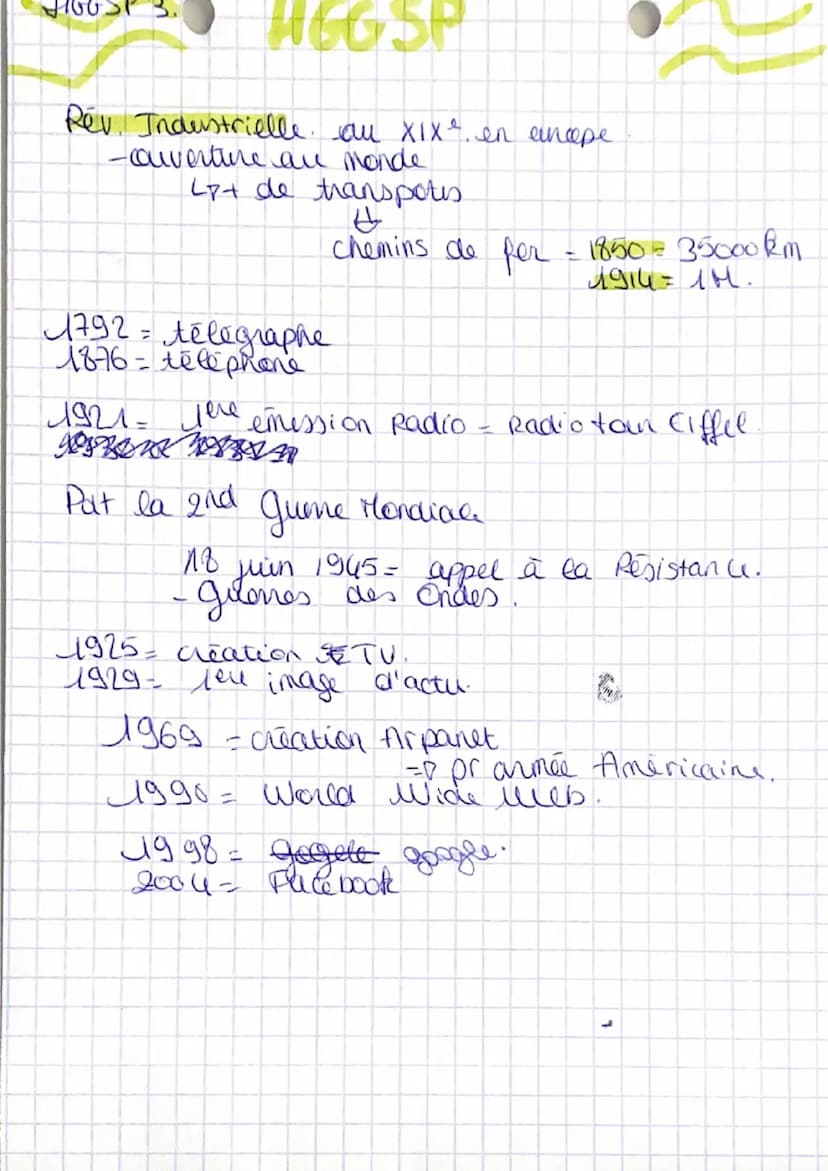 HGGSP 3.
HGGSP
Rév. Industrielle. au XIXe. en europe.
- ouverture au monde
↳ + de transports
⇓
chemins de fer = 1850 = 35000km
1914 = 1M.
1792 = télégraphe
1876 = téléphone
1921 = 1ere émission Radio = Radio tour Eiffel.
Pdt la 2nd Guerre Mondiale
18 juin 1945 = appel à la Résistance.
- Guerres des Ondes.
1925 = création TV.
1929 = 1ere image d'actu.
1969 = création Arpanet
=> pr armée Américaine.
1990 = World Wide Web.
1998 = google.
2004 = Facebook